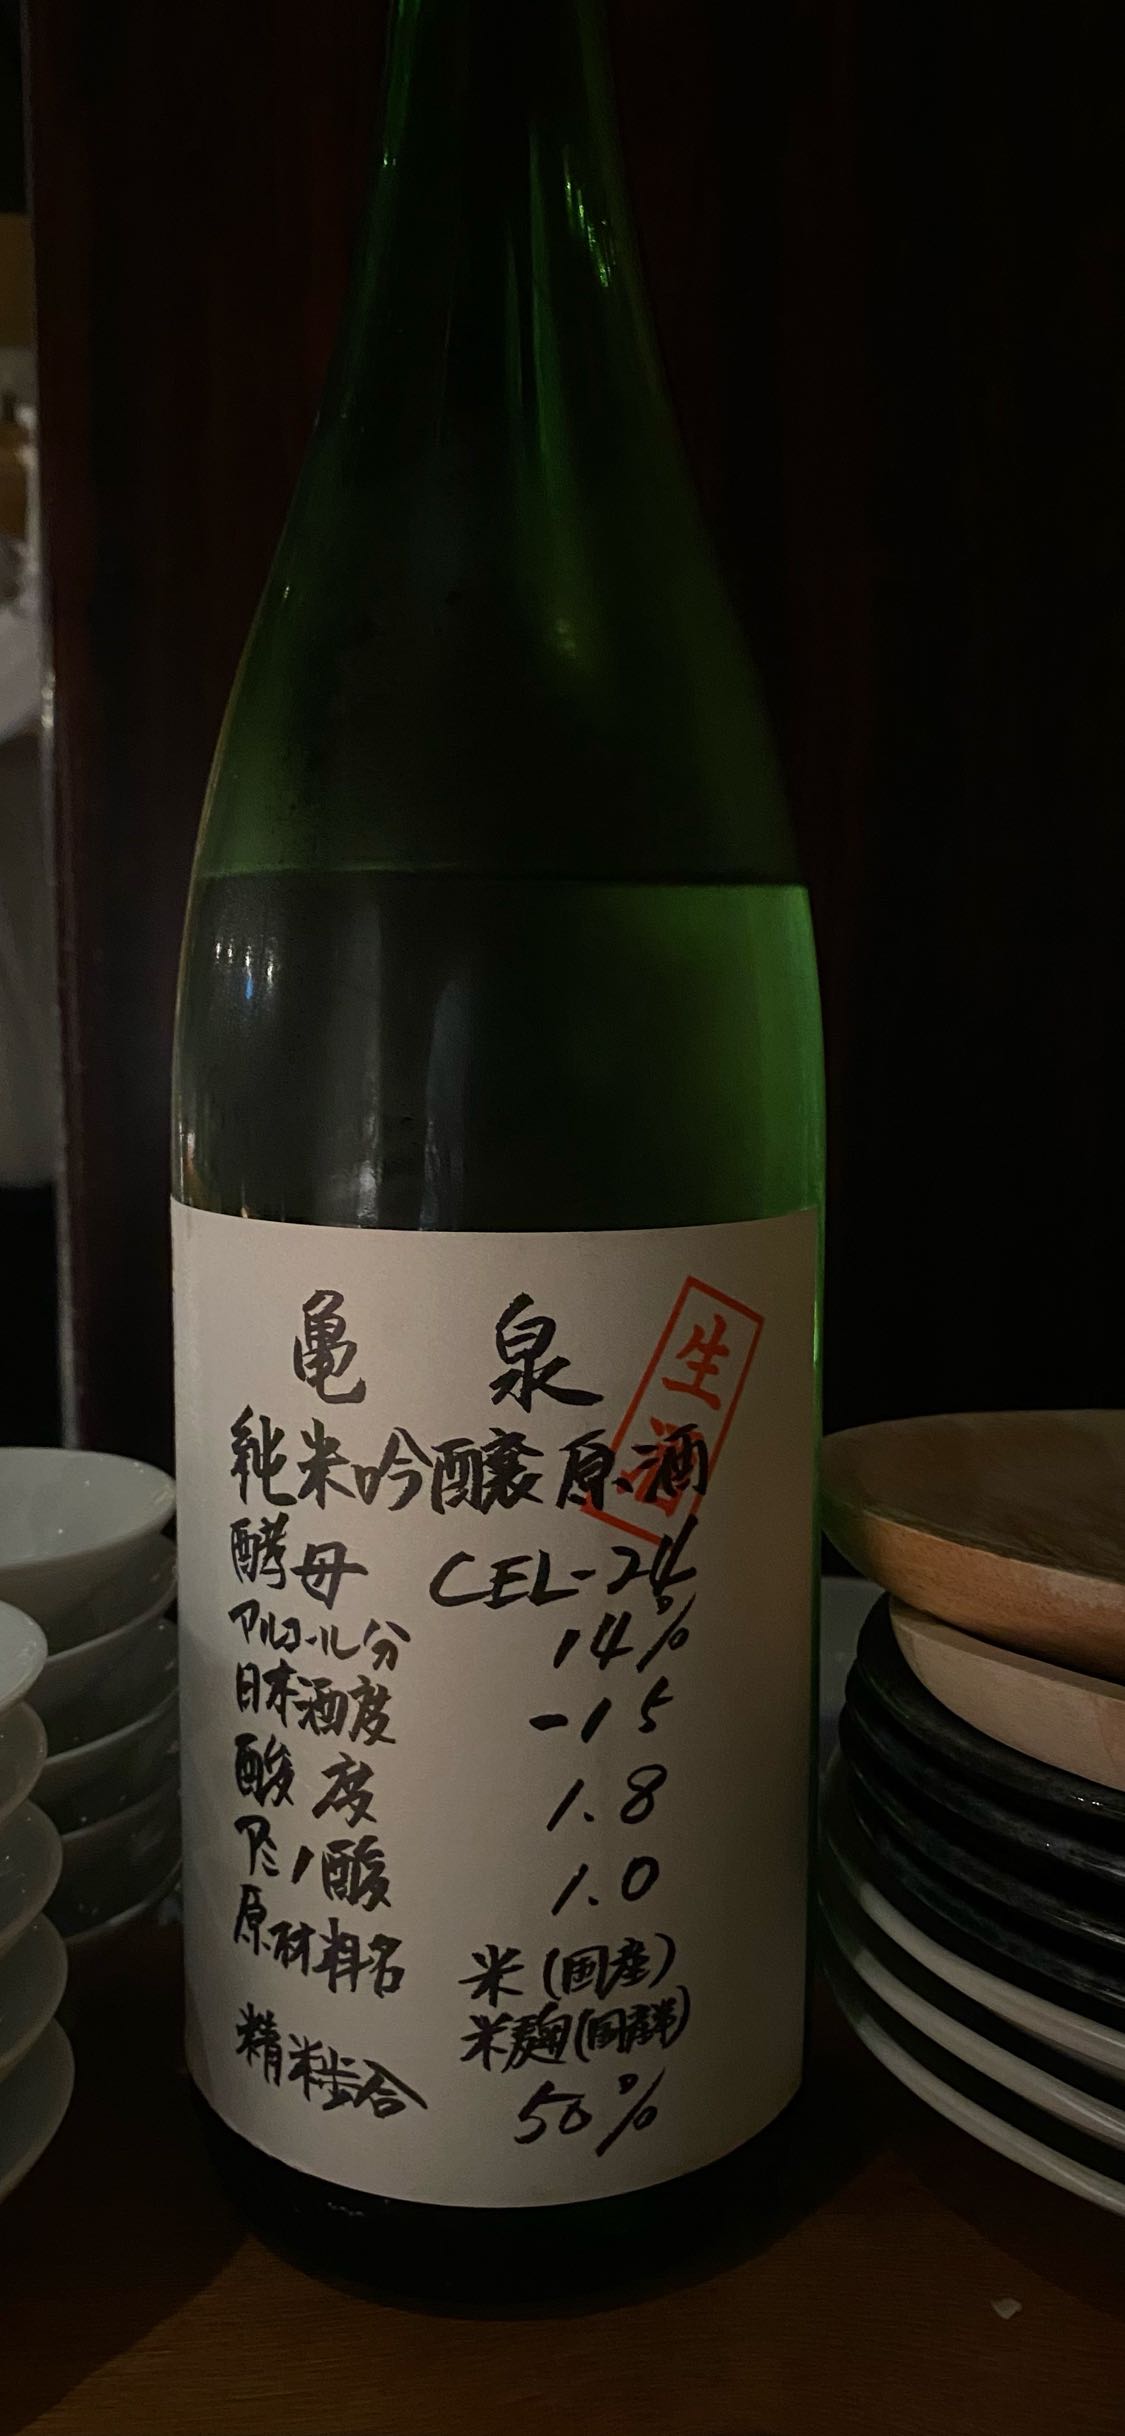 亀 泉
生酒
純米吟醸原酒
酵母 CEL-24
アルコール分 14%
日本酒度 -15
酸度 1.8
アミノ酸 1.0
原材料名 米(国産)
米麹(国産米)
精米歩合 50%